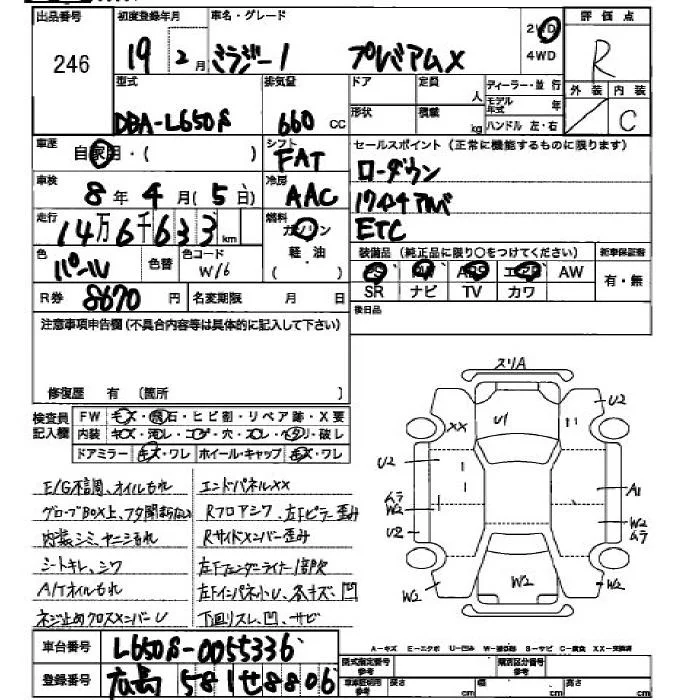 出品番号 初度登録年月 車名・グレード 評価点
246 19 2月 ミラジーノ プレミアムX 2WD 4WD R
型式 排気量 ドア 定員 人 ディーラー・並行 外装 内装
DBA-L650S 660 CC 形状 積載 kg モデル年式 年 C
ハンドル 左・右
車歴 自家用・( ) シフト FAT セールスポイント (正常に機能するものに限ります)
車検 8年4月(5日) 冷房 AAC ローダウン
17インチアルミ
走行 14万6千633km 燃料 ガソリン ETC
軽油 ( )
色 パール 色替 色コード W16 装備品 (純正品に限り○をつけてください) 新車保証書
PS PW ABS エアB AW 有・無
R券 8670円 名変期限 月 日 SR ナビ TV カワ
後日品
注意事項申告欄(不具合内容等は具体的に記入して下さい)
修復歴 有 (箇所 )
検査員記入欄 FW キズ・飛石・ヒビ割・リペア跡・X要
内装 キズ・汚レ・コゲ・穴・スレ・ヘタリ・破レ
ドアミラー キズ・ワレ ホイール・キャップ キズ・ワレ
E/G不調、オイルもれ エンドパネルXX
グローブBOX上、フタ閉まらない Rフロアシワ、左Fピラー歪み
内装シミ、ヤニ汚れ Rサイドメンバー歪み
シートキレ、シワ 左Fフェンダーライナー1部欠
A/Tオイルもれ 左Fインパネ小U、各キズ、凹
ネジ止めクロスメンバーU 下回リスレ、凹、サビ
スリA
XX U1 U2
U2
ムラ W2 A1
U2 W2 ムラ
W2 W2 W2
車台番号 L650S-0055336
A-キズ E-エクボ U-凹ミ W-補修跡 S-サビ C-腐食 XX-交換済
登録番号 広島 581せ8806
型式指定番号 参考 類別区分番号 参考
車庫証明用 参考 長さ cm 幅 cm 高さ cm